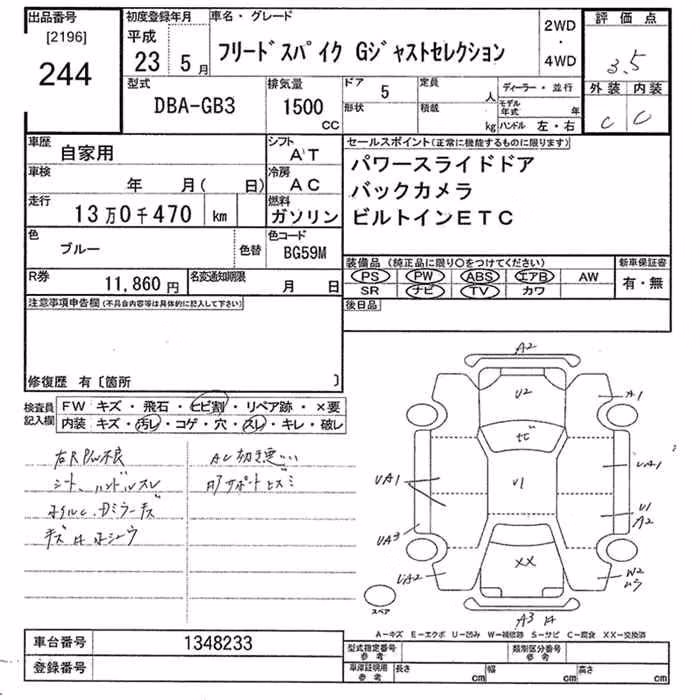 出品番号 初度登録年月 車名・グレード 2WD 評価点
[2196] 平成 ・
244 23 5月 フリードスパイク Gジャストセレクション 4WD 3.5
外装 内装
C C
型式 排気量 ドア 5 定員 人 ディーラー・並行
DBA-GB3 1500 cc 形状 積載 kg モデル年式 年
ハンドル 左・右
車歴 自家用 シフト AT セールスポイント(正常に機能するものに限ります)
車検 年 月( 日) 冷房 AC パワースライドドア
走行 13万0千470 km 燃料 ガソリン バックカメラ
ビルトインETC
色 ブルー 色替 色コード BG59M
装備品 (純正品に限り○をつけてください) 新車保証書
R券 11,860円 名変通知期限 月 日 PS PW ABS エアB AW 有・無
SR ナビ TV カワ
注意事項申告欄(不具合内容等は具体的に記入して下さい) 後日品
修復歴 有〔箇所 〕
検査員 FW キズ・飛石・ヒビ割・リペア跡・×要
記入欄 内装 キズ・汚レ・コゲ・穴・スレ・キレ・破レ
右R P/W不良
シート、ハンドルスレ
ホイルC、Dミラーキズ
A2
A1
U2
ヒビ
UA1 U1 UA1
U1
A2
UA3
UA2 XX W2
スペア A3
A-キズ E-エクボ U-凹み W-補修跡 S-サビ C-腐食 XX-交換済
車台番号 1348233 型式指定番号 参考 類別区分番号 参考
登録番号 車庫証明用 参考 長さ cm 幅 cm 高さ cm